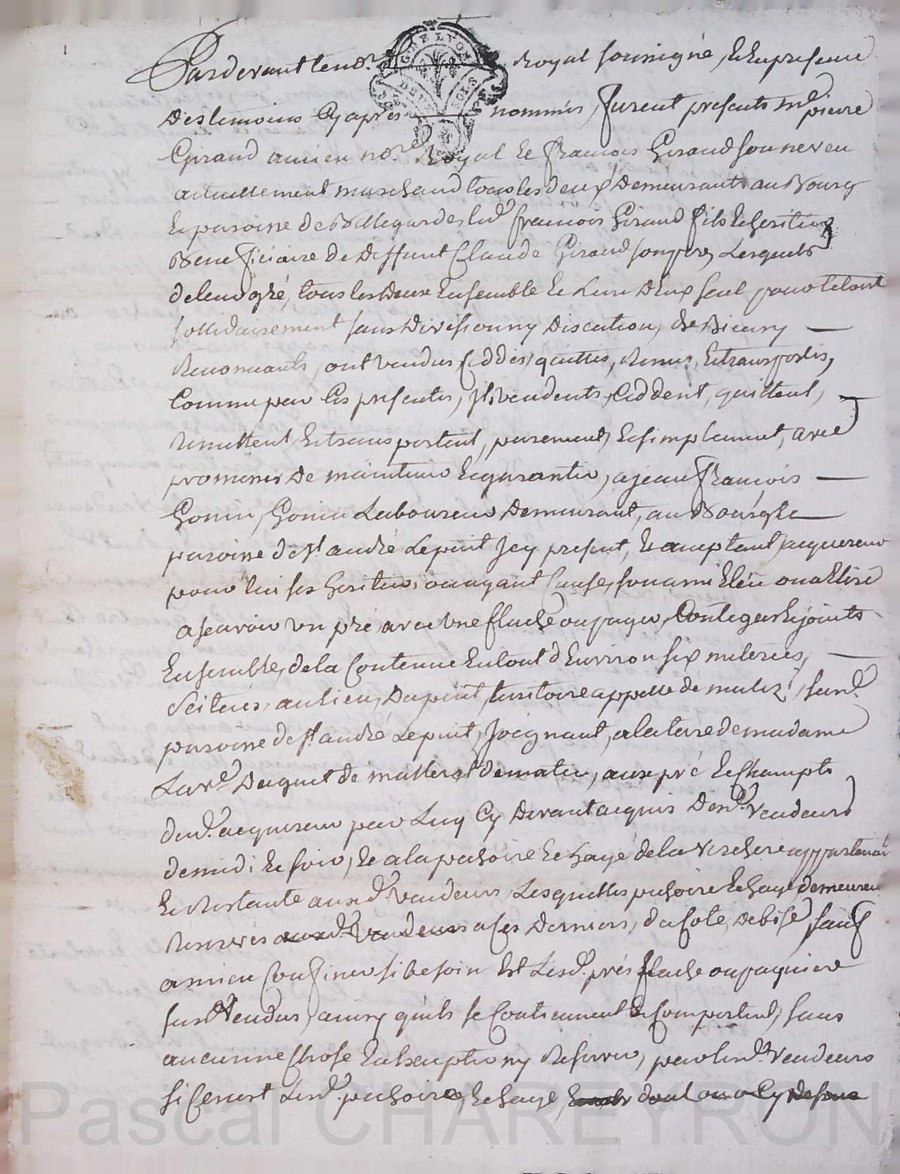 Pardevant le no.re Royal soussigné, et en presence
G. DE LYON
Des temoins Cy apres nommés, furent presents m.e pierre
Giraud ancien no.re Royal et francois Giraud son neveu
actuellement marchand tous les deux Demeurants au Bourg
et paroisse de Bellegarde, led. francois Giraud fils et heritier
Beneficiaire de Deffunt Claude Giraud son pere, Lesquels
de leur gré, tous les deux Ensemble et L'un D'eux seul pour le tout
sollidairement sans Division ny Discution, de Bien y
Renoncants, ont vendus, ceddés, quittés, Remis, et transportés,
Comme par Ces presentes, ils vendents, Ceddent, quittent,
Remettent, et transportent, purement, et simplement, avec
promesses de maintenir et garantir, a jean francois
Gonin, Gonin Laboureur Demeurant, au Bourg et
paroisse de st andré Le puit Icy present, et acceptant acquereur
pour lui ses heritiers ou ayant Cause, son ami Eleu ou a Elire
a scavoir un pré, avec une flache ou paquier, Contegus et joints
Ensemble, de la Contenue En tout d'Environ six meterées,
Scitués, au lieu, Du puit, territoire appellé de matez, sur d.
paroisse de st andré Le puit, Joignant, a la terre de madame
La v.e Duguet de matin, aux pré et champts
dud. acquereur par Luy Cy Devant acquis Des d. vendeurs
de midi et soir, et a la puchoire et haye de la Verchere appartenant
et Restante aux d. vendeurs, Lesquelles puchoire et haye demeurent
Reservés aux d. vendeurs a ses Derniers, du coté, de bise, sauf
a mieux Confiner si besoin Est Lesd. prés flache ou paquier
sus vendus, ainsy qu'ils se Contiennent et Comportent, sans
aucunne chose En Exception ny Reserver, par lesd. vendeurs
si Ce n'est Lesd. puchoire, et haye dont on a Cy dessus
Pascal CHAREYRON